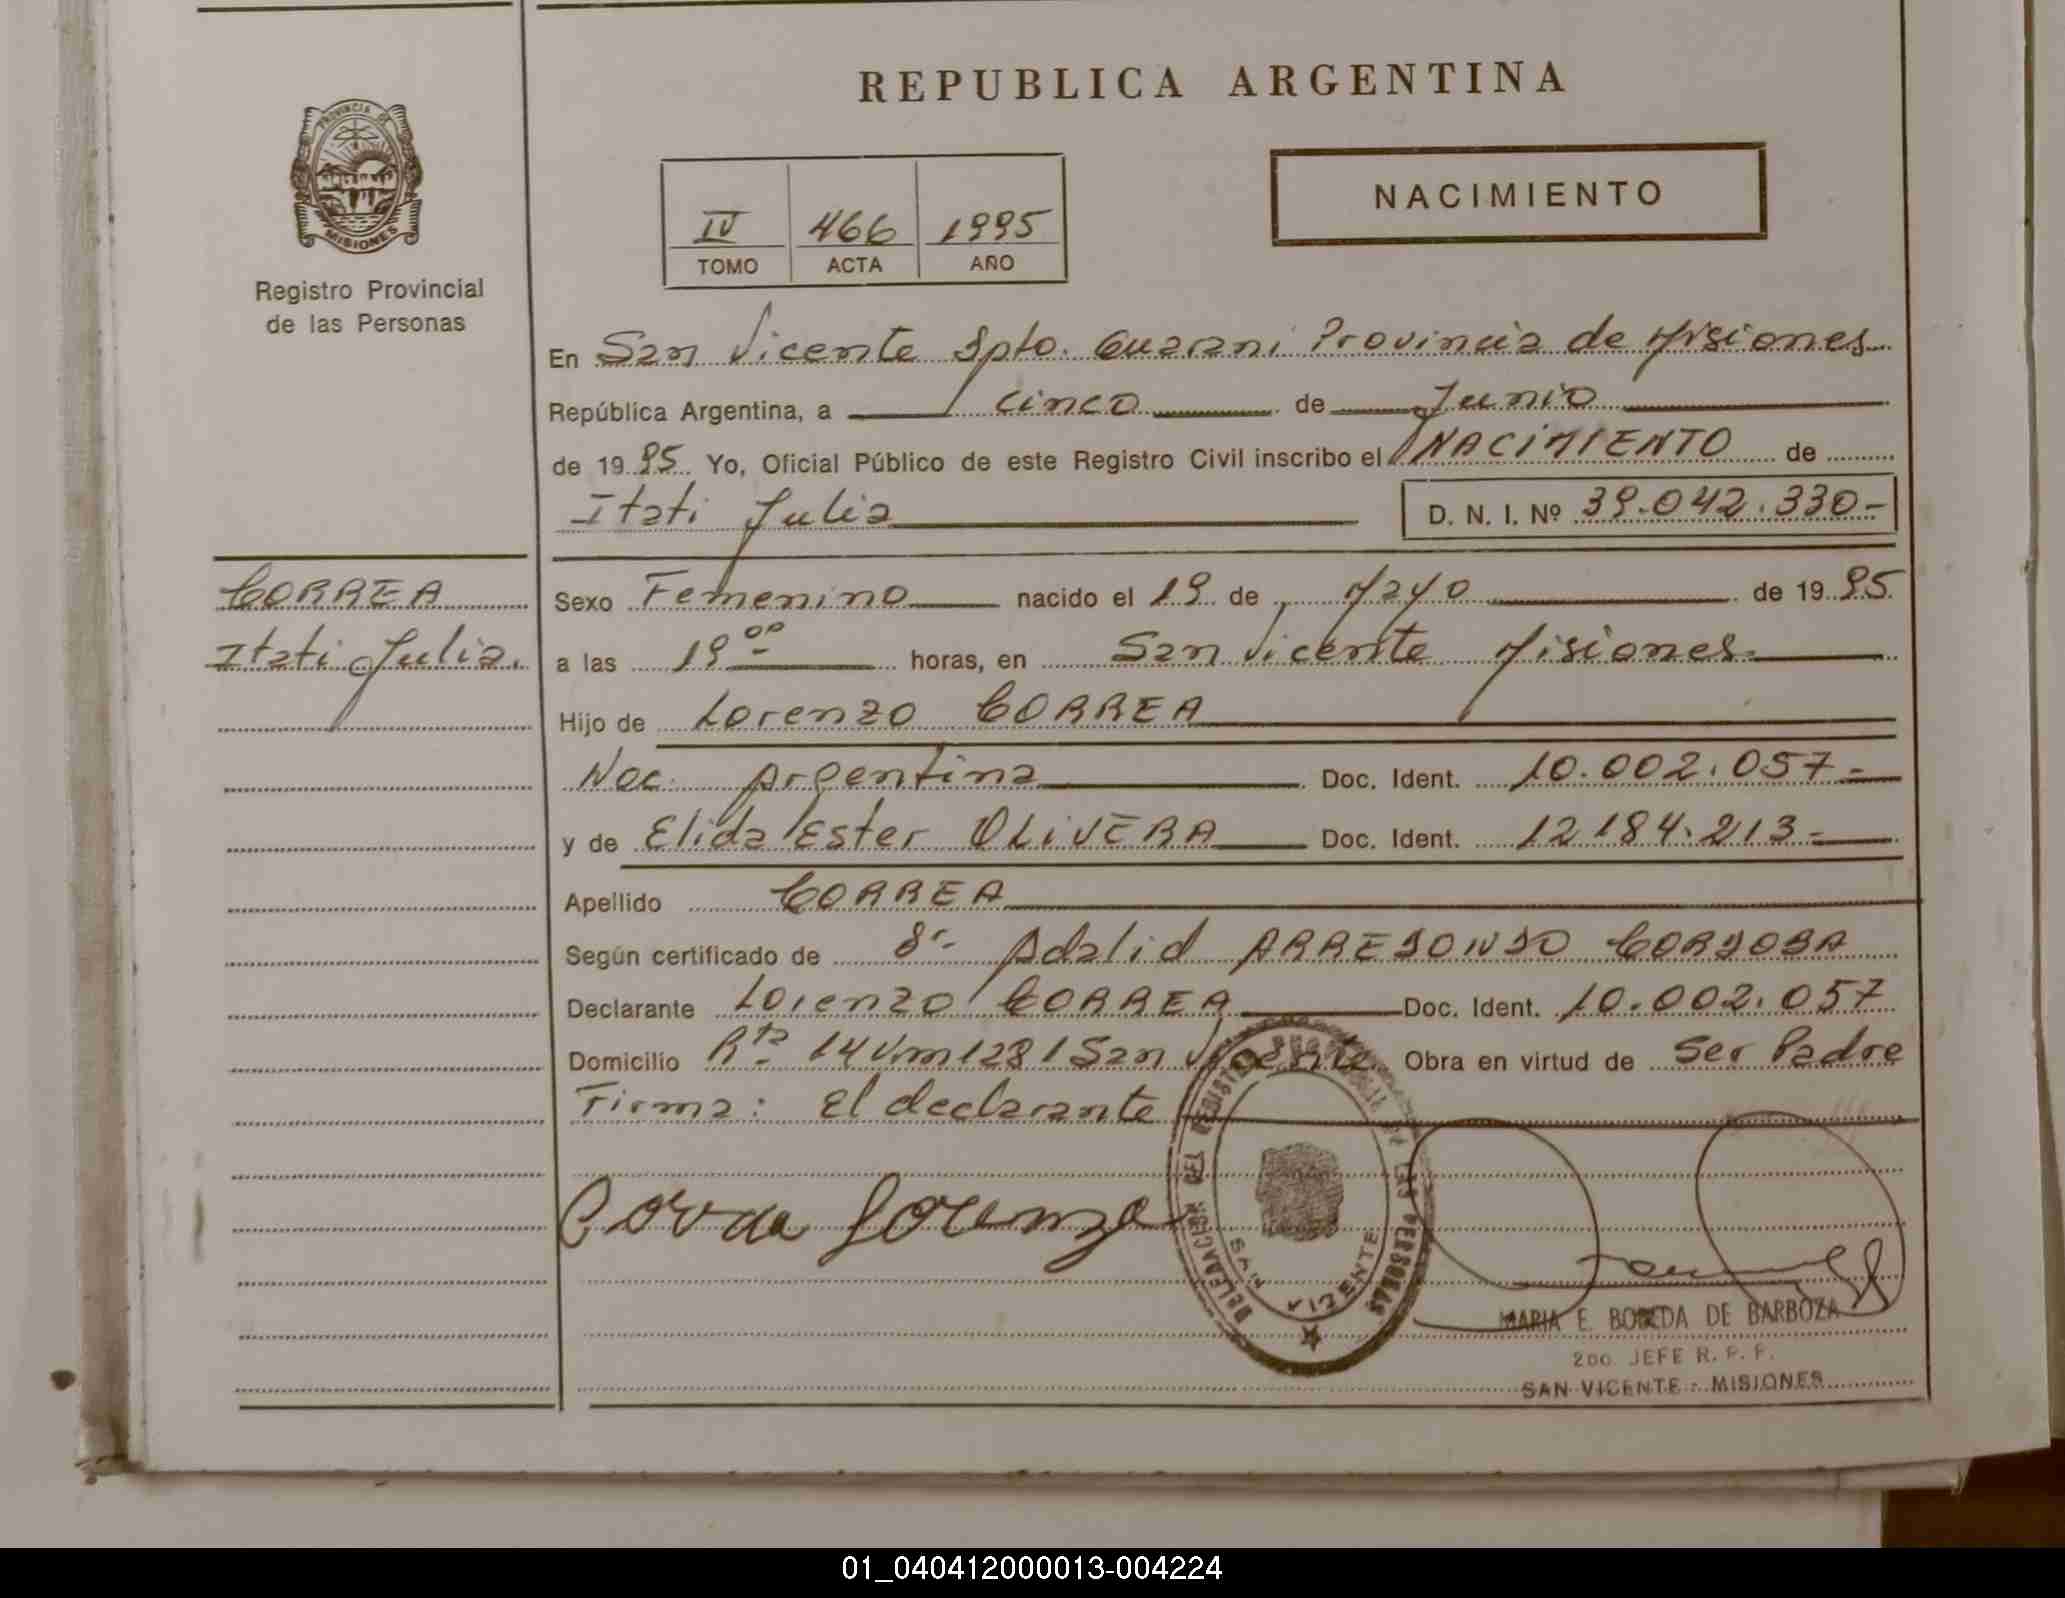 REPUBLICA ARGENTINA
PROVINCIA DE
MISIONES
Registro Provincial
de las Personas
NACIMIENTO
IV 466 1995
TOMO ACTA AÑO
En San Vicente Dpto. Guarani Provincia de Misiones
República Argentina, a cinco de Junio
de 1995 Yo, Oficial Público de este Registro Civil inscribo el NACIMIENTO de
Itati Julia D. N. I. Nº 39.042.330-
CORREA
Itati Julia.
Sexo Femenino nacido el 19 de Mayo de 1995
a las 19 00 horas, en San Vicente Misiones
Hijo de Lorenzo CORREA
Nac. Argentina Doc. Ident. 10.002.057-
y de Elida Ester OLIVERA Doc. Ident. 12.184.213-
Apellido CORREA
Según certificado de Dr. Adalid ARREDONDO CORDOBA
Declarante Lorenzo CORREA Doc. Ident. 10.002.057
Domicilio Rta 14 Km 1281 San Vicente Obra en virtud de Ser Padre
Firma: El declarante
Correa Lorenzo
DELEGACION DEL REGISTRO PROVINCIAL DE LAS PERSONAS
SAN VICENTE
MARIA E. DE BARBOZA
2do JEFE R. P. P.
SAN VICENTE - MISIONES
01_040412000013-004224